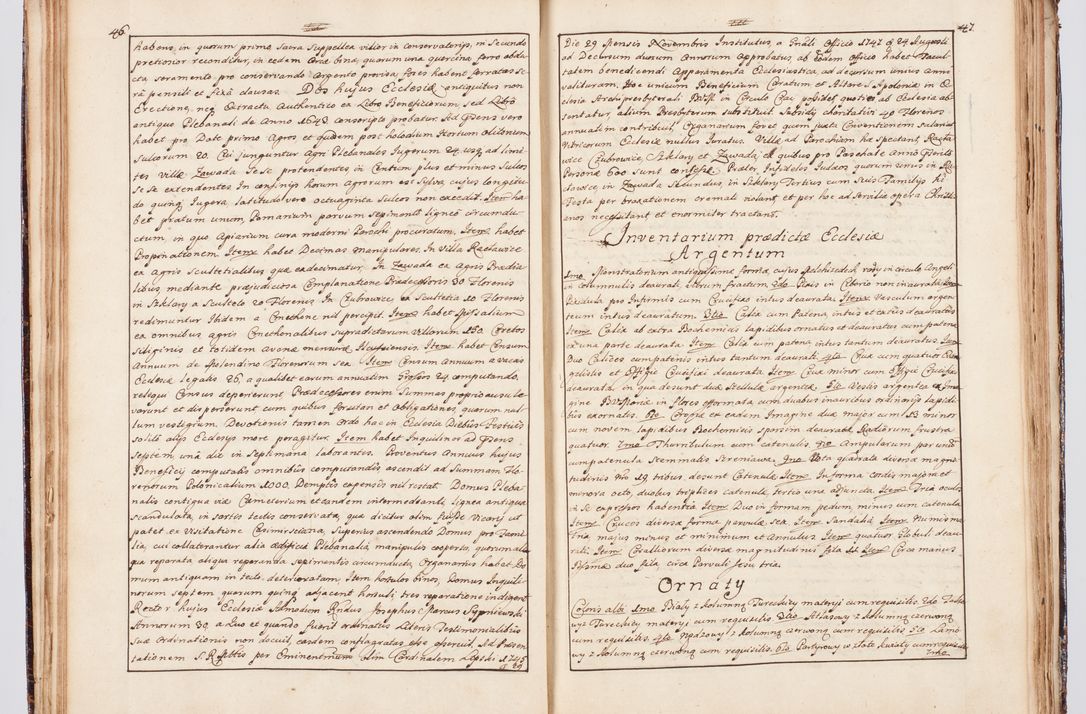 46.
habens, in quorum primo Sacra Suppellex vilior in conservatorijs, in Secundo
pretiosior reconditur, in eadem bina, quorum una quercina ferro obdu-
cta seramento pro conservando Argento provisa, fores habent ferratas Se-
ra pensili et fixa clausas. Dos hujus Ecclesiæ antiquitus non
Erectione, neq Extractu Authentico ex Libro Beneficiorum, sed Libro
antiquo Plebanali de Anno 1643 conscripto probatur. Ad Præsens vero
habet pro Dote primo Agros et quidem post holodium Hortum olitorium
Sulcorum 20. Cui junguntur Agri Plebanales Jugerum 24. usq ad limi-
tes Villæ Zawada Sese protendentes in Centum plus et minus Sulcos
Se Se extendentes. In confinijs horum Agrorum est Sylva, cujus longitu-
do quinq Jugera, latitudo vero octuaginta Sulcos non excedit. Item ha-
bet pratum unum, Pomarium parvum Sepimento ligneo circumdu-
ctum, in quo Apiarium cura moderni Parochi procuratum, Item habet
Propinationem. Item habet Decimas manipulares, In Villa Racławice
ex Agris Scultetialibus quæ exdecimatur. In Zawada ex Agris Prædia-
libus mediante præjudiciosa Complanatione Prædecessoris 30 Florenis
in Szklary a Sculteto 20 Florenis In Czubrowice ex Scultetia 10 Florenis
redimuntur Ibidem a Cmethone nil percipit. Item habet Missalium
ex omnibus agris Cmethonalibus Supradictarum Villarum 150. Coretos
Siliginis et totidem avenæ mensuræ Ilcussiensis. Item habet Censum
Annuum de Molendino Florenorum Sex. Item Censum Annuum a vaccis
Ecclesiæ legatis 26, a qualibet earum annuatim Grosos 24 computando,
reliqui Census deperierunt Prædecessores enim Summas proprio usu le-
varunt et disperserunt cum quibus forsitan et obligationes, quorum nul-
lum vestigium. Devotionis tamen Ordo hac in Ecclesia Diebus Festivis
Solito alijs Ecclesijs more peragitur. Item habet Inquilinos ad præsens
Septem una die in Septimana laborantes. Proventus Annuus hujus
Beneficij computatis omnibus computandis ascendit ad Summam Flo-
renorum Polonicalium 1000. Demptis expensis nil restat. Domus Pleba-
nalis contigua via Cæmeterium et eandem intermedianti, lignea antiqua
Scandulata, in Sortis tectis conservata, quæ dicitur olim fuisse Vicarij ut
patet ex Visitatione Casimirsciana. Superius ascendendo Domus pro Fami-
lia, cui collaterantur alia ædificia Plebanalia, manipulis cooperta, quorum ali-
qua reparata aliqua reparanda Sepimentis circumducta, Organarius habet Do-
mum antiquam in tecto deterioratam, Item hortulos binos, Domus Inquili-
norum Septem quorum quinq adjacent hortuli, tres reparatione indigent.
Rector hujus Ecclesiæ Admodum Rndus Josephus Marcus Szypniewski
Annorum 30. a Quo et quando fuerit ordinatus Literis Testimonialibus
Suæ Ordinationis non docuit, easdem conflagratas esse asseruit, Ad Præsen-
tationem S. R. Mttis per Eminentmum olim Cardinalem Lipski A 1745
47.
Die 29 Mensis Novembris Institutus, a Gnali Officio 1747 d 24 Augusti
ad Decursum duorum Annorum Approbatus, ab eodem Officio habet Facul-
tatem benedicendi Apparamenta Ecclesiastica, ad decursum unius Anni
valituram. Hoc unicum Beneficium Curatum et Altare S. Apoloniæ in Ec-
clesia Archipresbyterali in Circulo possidet, quoties ab Ecclesia ab-
sentatur, alium Presbyterum Substituit. Subsidy charitativi 40 Florenos
annuatim contribuit. Organarium fovet quem juxta Conventionem Salariat
Vitricorum Ecclesiæ nullus Juratus. Villæ ad Parochiam hc spectant, Racła-
wice, Czubrowice, Szklary et Zawada ex quibus pro Paschate Anni Præteriti
Personæ 600 Sunt confessæ. Præter Infideles Judæos quorum unus in Ra-
cławice, in Zawada Secundus, in Szklary Tertius cum Suis Familijs hi
Festa per braxationem cremati violant, et per hoc ad Servilia opera Christi-
anos necessitant et enormiter tractant.
Inventarium prædictæ Ecclesiæ
Argentum
1mo. Monstratorium antiquissimæ formæ, cujus Melchisedech in circulo Angeli
in columnulis deaurati, utrum fractum. 2do Pixis in Ciborio non inaurata
Pixidula pro Infirmis cum Crucifixo intus deaurata. Item Vasculum argen-
teum intus deauratum. 3tio Calix cum Patena, intus et extus deauratus
Item Calix ab extra Bochemicis lapidibus ornatus et deauratus cum patena
ex una parte deaurata. Item Calix cum patena intus tantum deauratus. Item
Duo Calices cum patenis intus tantum deaurati. 4to Crux cum quatuor Evan-
gelistis et Effigie Crucifixi deaurata. Item Crux minor cum Effigie Crucifixi
deaurata, in qua desunt duæ Stellulæ argenteæ. 5to Vestis argentea ex Ima-
gine BVMariæ in flores efformata cum duabus inauribus orichinis lapidi-
bus exornatis. 6to Coronæ ex eadem Imagine duæ major cum 13 minor
cum novem lapidibus Bochemicis Sparsim deauratæ Radiorum frustra
quatuor. 7mo Thuribulum cum catenulis. 8vo Ampularum par unum
cum patenula Stemmatis Sreniawa. 9no Vota quadrata diversæ magni-
tudinis Nro 19 tribus desunt Catenulæ. Item In forma Cordis majora et
minora octo, duobus triplices catenulæ, tertio una adjuncta. Item Tria oculos
in Se expressos habentia Item Duo in formam pedum, minus cum catenula
Item Cruces diversæ formæ parvulæ Sex. Item Sandalia. Item Numisma-
tria, majus minus et minimum et Annulus. Item quatuor Globuli deau-
rati. Item Coralliorum diversæ magnitudinis fila 11 Item Circa manus
Pissimæ duo fila, circa Parvuli Jesu tria.
Ornaty
Coloris albi 1mo Biały z kolumną Tureckiey materyi cum requisitis. 2do
wy z Tureckiey materyi cum requisitis. 3tio Atłasowy z kolumną czerwoną
cum requisitis. 4to z kolumną czerwoną cum requisitis. 5to Lamo-
wy z kolumną czerwoną cum requisitis. 6to Partyrowy w złote kwiaty cum requisitis
7mo